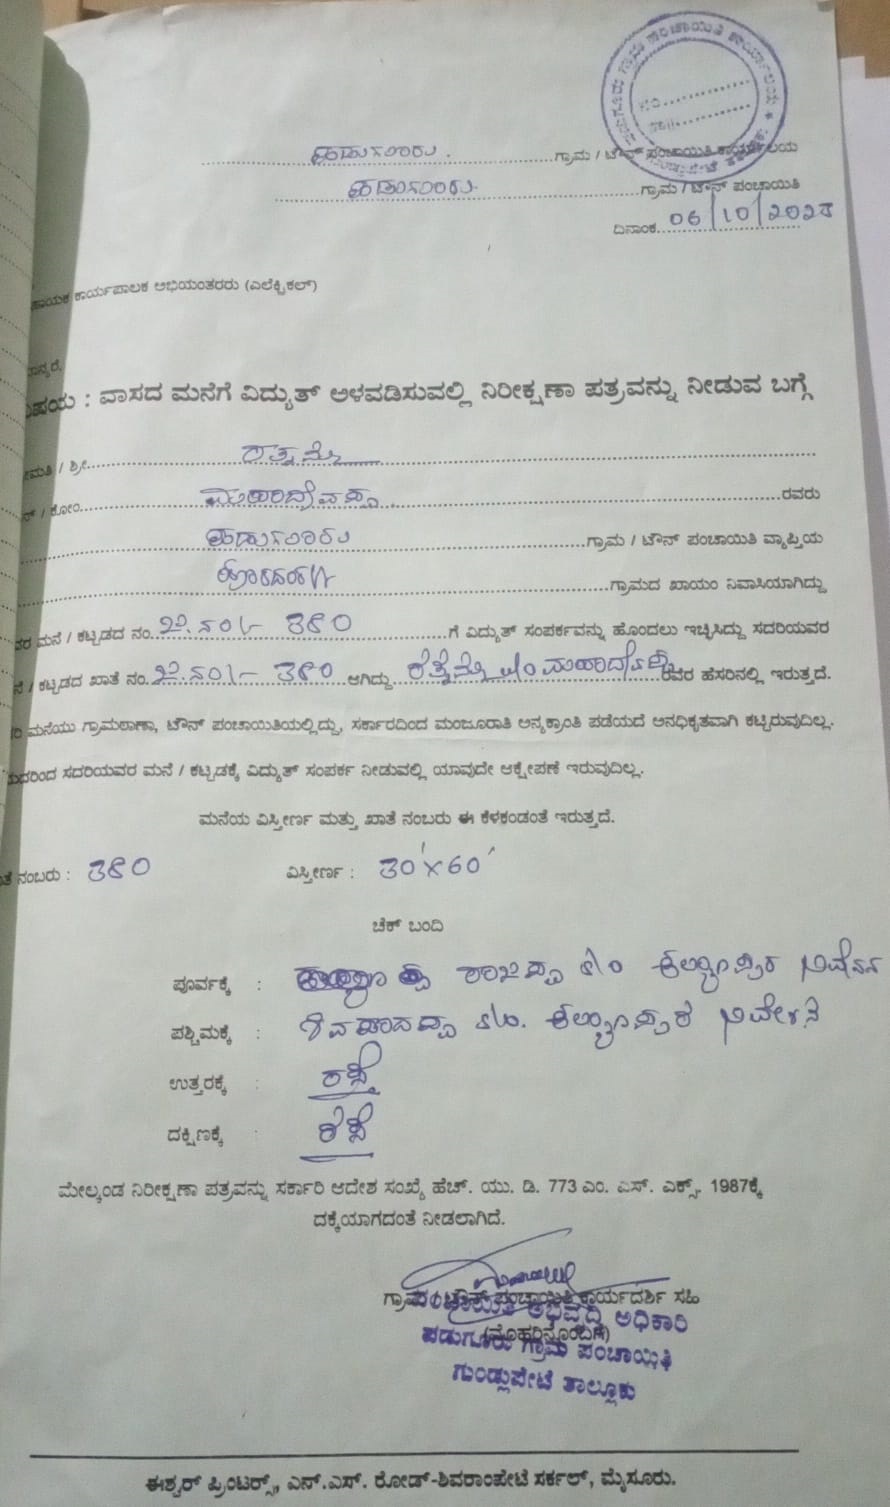 ಗ್ರಾಮ ಪಂಚಾಯಿತಿ ಕಾರ್ಯಾಲಯ
ಪಡುಗೂರು. ಗ್ರಾಮ / ಟೌನ್ ಪಂಚಾಯಿತಿ ಕಾರ್ಯಾಲಯ
ಪಡುಗೂರು. ಗ್ರಾಮ / ಟೌನ್ ಪಂಚಾಯಿತಿ
ದಿನಾಂಕ 06/10/2023
ಕಾರ್ಯಪಾಲಕ ಅಭಿಯಂತರರು (ಎಲೆಕ್ಟ್ರಿಕಲ್)
: ವಾಸದ ಮನೆಗೆ ವಿದ್ಯುತ್ ಅಳವಡಿಸುವಲ್ಲಿ ನಿರೀಕ್ಷಣಾ ಪತ್ರವನ್ನು ನೀಡುವ ಬಗ್ಗೆ
/ ಶ್ರೀ ರತ್ನಮ್ಮ
/ ಕೋಂ ಮಹಾದೇವಪ್ಪ ರವರು
ಪಡುಗೂರು ಗ್ರಾಮ / ಟೌನ್ ಪಂಚಾಯಿತಿ ವ್ಯಾಪ್ತಿಯ
ಗ್ರಾಮದ ಖಾಯಂ ನಿವಾಸಿಯಾಗಿದ್ದು
ಮನೆ / ಕಟ್ಟಡದ ನಂ. 380 ಗೆ ವಿದ್ಯುತ್ ಸಂಪರ್ಕವನ್ನು ಹೊಂದಲು ಇಚ್ಛಿಸಿದ್ದು ಸದರಿಯವರ
/ ಕಟ್ಟಡದ ಖಾತೆ ನಂ. 380 ಆಗಿದ್ದು ರತ್ನಮ್ಮ ಮಹಾದೇವಪ್ಪ ರವರ ಹೆಸರಿನಲ್ಲಿ ಇರುತ್ತದೆ.
ಮನೆಯು ಗ್ರಾಮಠಾಣಾ, ಟೌನ್ ಪಂಚಾಯಿತಿಯಲ್ಲಿದ್ದು, ಸರ್ಕಾರದಿಂದ ಮಂಜೂರಾತಿ ಅನ್ಯಕ್ರಾಂತಿ ಪಡೆಯದೆ ಅನಧಿಕೃತವಾಗಿ ಕಟ್ಟಿರುವುದಿಲ್ಲ.
ಸದರಿಯವರ ಮನೆ / ಕಟ್ಟಡಕ್ಕೆ ವಿದ್ಯುತ್ ಸಂಪರ್ಕ ನೀಡುವಲ್ಲಿ ಯಾವುದೇ ಆಕ್ಷೇಪಣೆ ಇರುವುದಿಲ್ಲ.
ಮನೆಯ ವಿಸ್ತೀರ್ಣ ಮತ್ತು ಖಾತೆ ನಂಬರು ಈ ಕೆಳಕಂಡಂತೆ ಇರುತ್ತದೆ.
ನಂಬರು : 380 ವಿಸ್ತೀರ್ಣ : 30'×60'
ಚೆಕ್ ಬಂದಿ
ಪೂರ್ವಕ್ಕೆ : s/o
ಪಶ್ಚಿಮಕ್ಕೆ : s/o.
ಉತ್ತರಕ್ಕೆ : ರಸ್ತೆ
ದಕ್ಷಿಣಕ್ಕೆ : ರಸ್ತೆ
ಮೇಲ್ಕಂಡ ನಿರೀಕ್ಷಣಾ ಪತ್ರವನ್ನು ಸರ್ಕಾರಿ ಆದೇಶ ಸಂಖ್ಯೆ ಹೆಚ್. ಯು. ಡಿ. 773 ಎಂ. ಎಸ್. ಎಕ್ಸ್. 1987ಕ್ಕೆ
ದಕ್ಕೆಯಾಗದಂತೆ ನೀಡಲಾಗಿದೆ.
ಗ್ರಾಮ / ಟೌನ್ ಪಂಚಾಯಿತಿ ಕಾರ್ಯದರ್ಶಿ ಸಹಿ
ಪಂಚಾಯಿತಿ ಅಭಿವೃದ್ಧಿ ಅಧಿಕಾರಿ
(ಮೊಹರಿನೊಂದಿಗೆ)
ಪಡುಗೂರು ಗ್ರಾಮ ಪಂಚಾಯಿತಿ
ಗುಂಡ್ಲುಪೇಟೆ ತಾಲ್ಲೂಕು
ಈಶ್ವರ್ ಪ್ರಿಂಟರ್ಸ್, ಎನ್.ಎಸ್. ರೋಡ್-ಶಿವರಾಂಪೇಟೆ ಸರ್ಕಲ್, ಮೈಸೂರು.